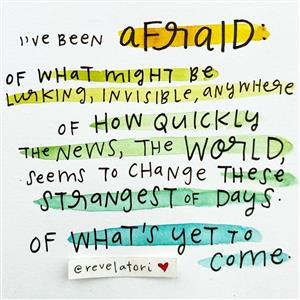 I'VE BEEN AFRAID:
OF WHAT MIGHT BE
LURKING, INVISIBLE, ANYWHERE
OF HOW QUICKLY
THE NEWS, THE WORLD,
SEEMS TO CHANGE THESE
STRANGEST OF DAYS.
OF WHAT'S YET TO
COME.
@revelatori ❤